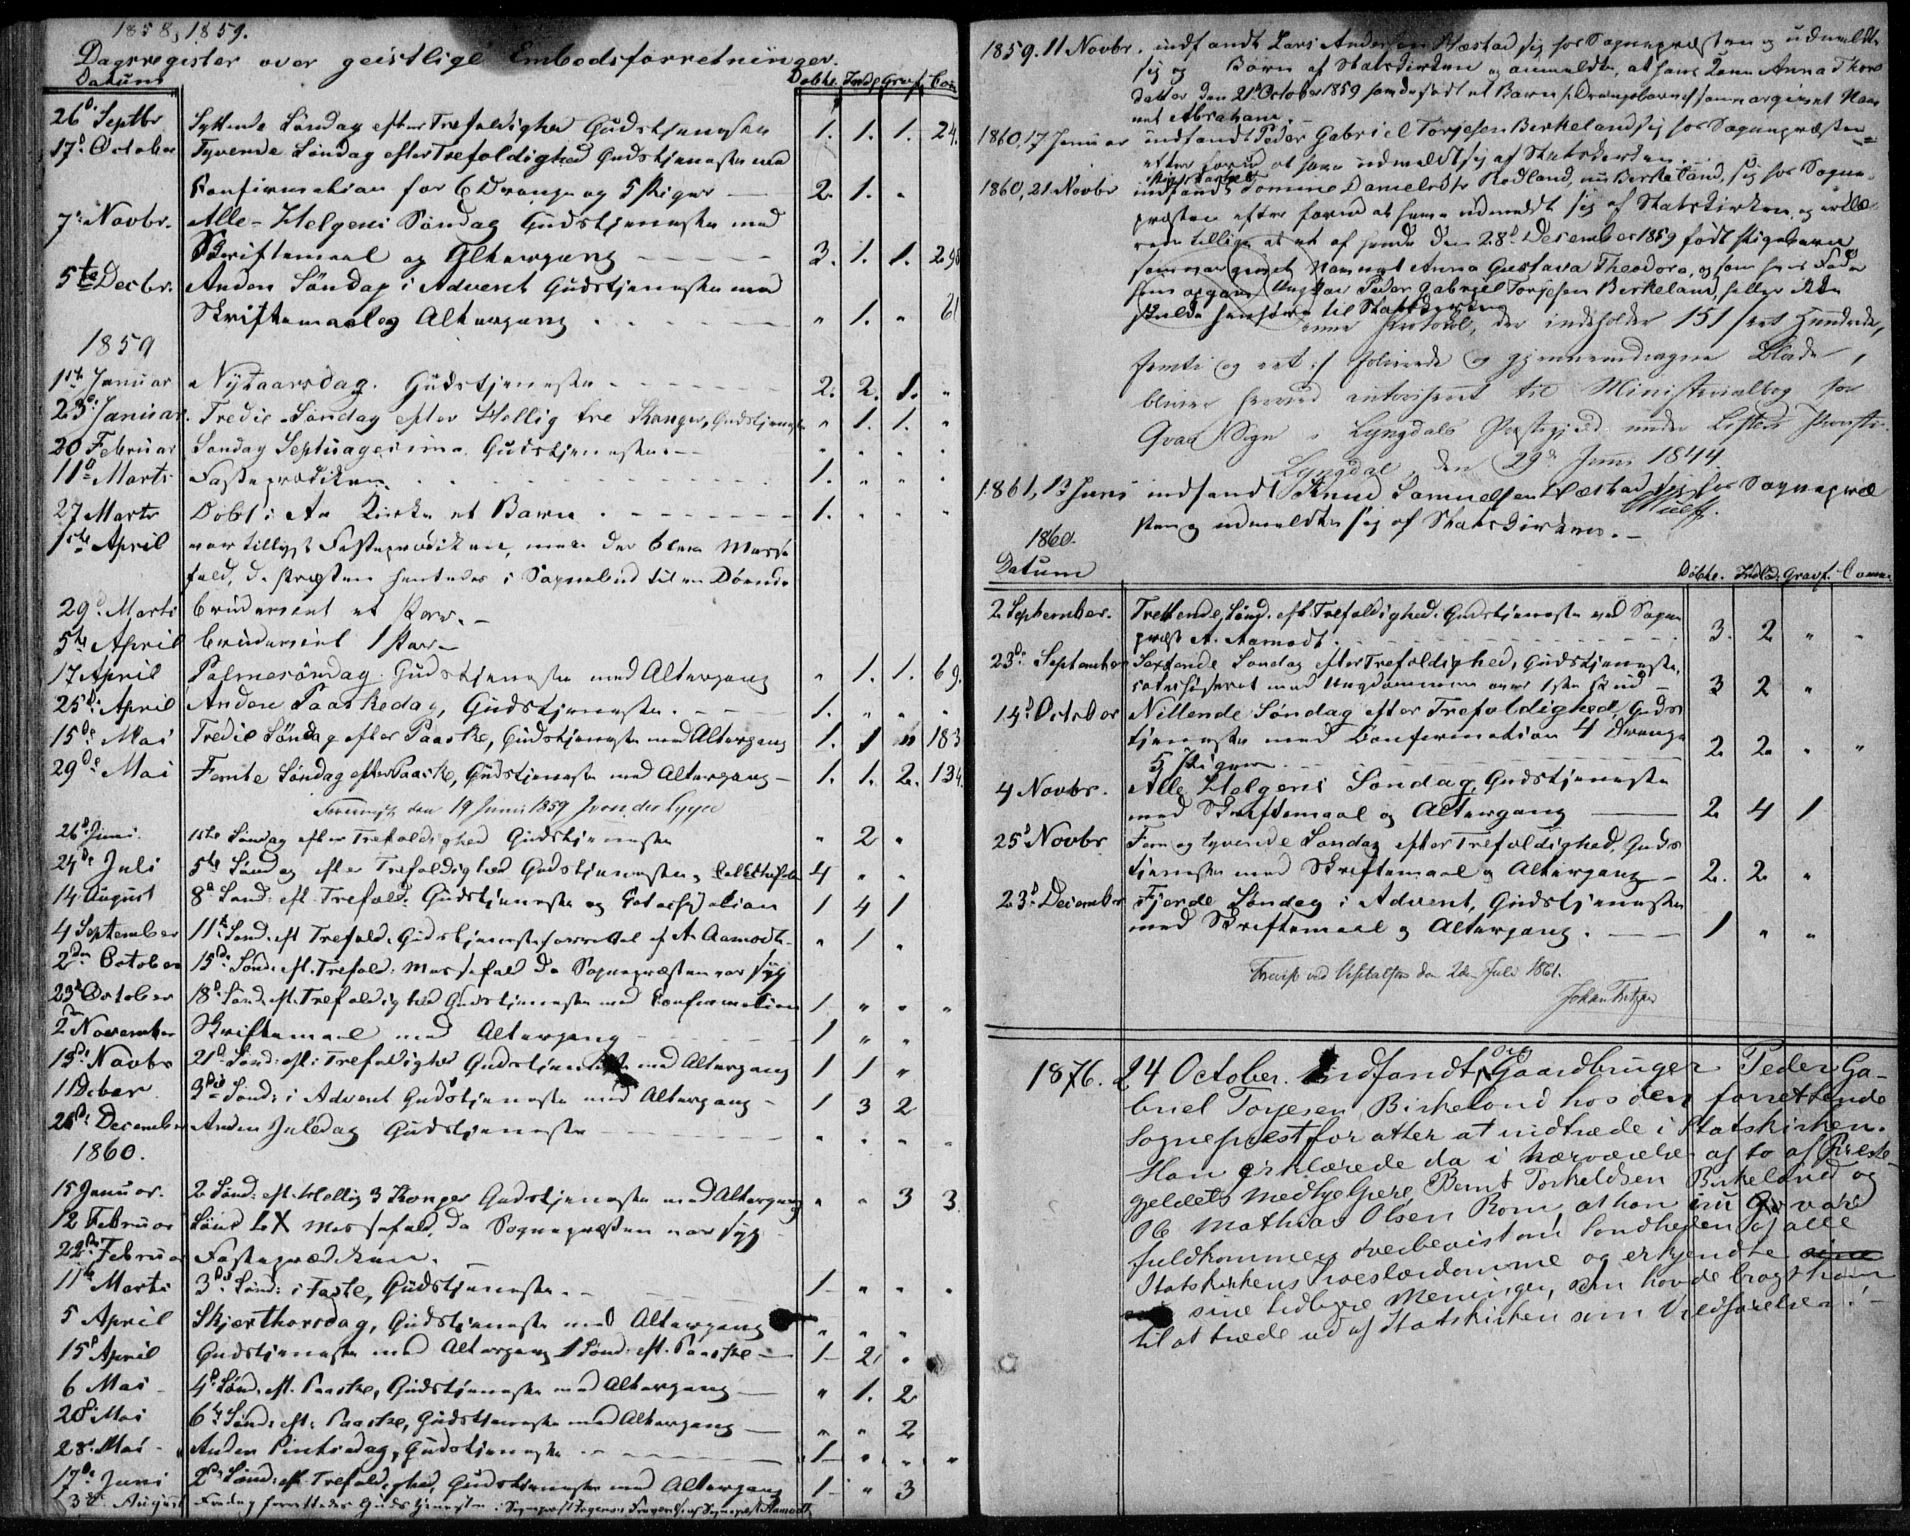 1858, 1859.
Dagsregister over geistlige Embedsforretninger.
Datum Døbte. Indl. Grav. Com.
26d Septbr Syttende Søndag efter Trefoldighed Gudstjeneste 1. 1. 1. 24.
17d October Tyvende Søndag efter Trefoldighed Gudstjeneste med
Confirmation for 6 Drenge og 5 Piger 2. 1. "
7 Novbr. Alle-Helgens Søndag Gudstjeneste med
Skriftemaal og Altergang 3. 1. 1.
5te Decbr. Anden Søndag i Advent Gudstjeneste med
Skriftemaal og Altergang " 1. " 61
1859
1ste Januar Nytaarsdag. Gudstjeneste 2. 2. 1. "
23d Januar. Tredie Søndag efter Hellig tre Konger, Gudstjeneste " 1. 1. "
20 Februar Søndag Septuagesima. Gudstjeneste " " " "
11d Marts Fasteprædiken 1. " " "
27 Marts Døbt i Aa Kirke et Barn 1. " " "
1ste April var tillyst Fasteprædiken, men der blev Messe
fald, da Præsten hentedes i Sognebud til en Døende
29d Marts brudeviet et Par.
5te April brudeviet 1 Par
17 April Palmesøndag Gudstjeneste med Altergang " 1. 1. 69.
25d April Anden Paaskedag, Gudstjeneste 1. " " "
15de Mai Tredie Søndag efter Paaske, Gudstjeneste med Altergang 1. 1 " 183
29de Mai Femte Søndag efter Paaske, Gudstjeneste med Altergang 1. 1. 2. 134.
den 19 Juni 1859
26d Juni. 1ste Søndag efter Trefoldighed Gudstjeneste " 2 "
24de Juli 5te Søndag efter Trefoldighed Gudstjeneste 4 " "
14 August 8d Sønd: eft Trefold. Gudstjeneste og Catechisation 1 4 1
4 September 11te Sønd: eft Trefold. Gudstjeneste forrettet af A. Aamodt " 1 "
2den October 15de Sønd: eft. Trefold. Messefald da Sognepræsten var syg
23d October 18d Sønd. eft. Trefoldighed Gudstjeneste med Confirmation 1 " " "
2 November Skriftemaal med Altergang 1 " "
13d Novbr 21d Sønd: eft: Trefoldighed Gudstjeneste med Altergang 1 1 "
11 Dcber. 3die Sønd: i Advent Gudstjeneste med Altergang 1 3 2
26d December Anden Juledag Gudstjeneste " " " "
1860.
15 Januar. 2 Sønd. eft. Hellig 3 Konger Gudstjeneste med Altergang " " 3 3
12 Februar Sønd LX Messefald, da Sognepræsten var syg
22d Februar Fasteprædiken.
11te Marts 3d Sønd: i Faste, Gudstjeneste 1 " " "
5 April Skjærthorsdag, Gudstjeneste med Altergang " " "
15d April Gudstjeneste med Altergang 1 Sønd. eft. Paaske 1 2 "
6 Mai 4d Sønd. eft. Paaske, Gudstjeneste med Altergang " 1. 2
20d Mai 6te Sønd: eft: Paaske, Gudstjeneste med Altergang " " 2
28d Mai Anden Pintsedag, Gudstjeneste 1 " " "
17de Juni 2den Sønd: eft Trefoldighed, Gudstjeneste med Altergang 1 " 3
3d August Fredag forrettedes Gudstjenesten i Sognepræst Fravær af Sognepræst Aamodt
1859. 11 Novbr. indfandt Lars Andersen sig hos Sognepræsten og udmeldte
sig og Børn af Statskirken og anmeldte, at hans Kone Anna Thors
datter den 21d October 1859 havde født et Barn Drengebarn som var givet Nav
net Abraham.
1860, 17 Januar indfandt Peder Gabriel Torjesen Birkeland sig hos Sognepræsten
efter forud at have udmeldt sig af Statskirken
1860, 21 Novbr indfandt Tomine Danielsdtr Rødland, nu Birkeland, sig hos Sogne
præsten efter forud at have udmeldt sig af Statskirken, og erklæ
rede tillige at et af hende den 28d December 1859 født Pigebarn
som var givet Navnet Anna Gustava Theodora, og som hvis Fader
hun opgav Ungkar Peder Gabriel Torjesen Birkeland, heller ikke
skulde henhøre til Statskirken
Denne Protocol, der indeholder 151 /: et Hundrede,
femti og eet :/ folierede og gjennemdragne Blade,
bliver herved autoriseret til Ministerialbog for
Qvaas Sogn i Lyngdals Præstegjeld under Listers Provsti.
Lyngdal, den 29de Juni 1844
1861, 13 Juni indfandt Samuelsen sig hos Sognepræ
sten og udmeldte sig af Statskirken.
1860.
Datum Døbte. Indled. Gravf. Comm.
2 September. Trettende Sønd. eft Trefoldighed. Gudstjeneste ved Sogne
præst A. Aamodt 3. 2 " "
23de September Sextende Søndag efter Trefoldighed, Gudstjeneste,
catechiseret med Ungdommen over 1ste Bud 3 2 "
14d October Nittende Søndag efter Trefoldighed Guds
tjeneste med Confirmation 4 Drenge
5 Piger 2 2 " "
4 Novbr. Alle Helgens Søndag, Gudstjeneste
med Skriftemaal og Altergang 2 4 1
25d Novbr Fem og tyvende Søndag efter Trefoldighed, Guds
tjeneste med Skriftemaal og Altergang 2. 2 "
23d December Fjerde Søndag i Advent, Gudstjeneste
med Skriftemaal og Altergang. 1 " "
Fremvist ved Visitatsen den 2den Juli 1861.
Johan Fritzner
1876. 24 October. Indfandt sig Gaardbruger Peder Ga-
briel Torjesen Birkeland hos den forrettende
Sogneprest for atter at indtræde i Statskirken.
Han erklærede da i Nærværelse af to af Preste
gjeldets Medhjelpere, Bernt Torkeldsen Birkeland og
Ole Mathias Olsen Rom, at han nu var
fuldkommen overbevist om Sandheden af alle
Statskirkens Troeslærdomme og erkjendte
sine tidligere Meninger, som havde bragt ham
til at træde ud af Statskirken som Vildfarelser.